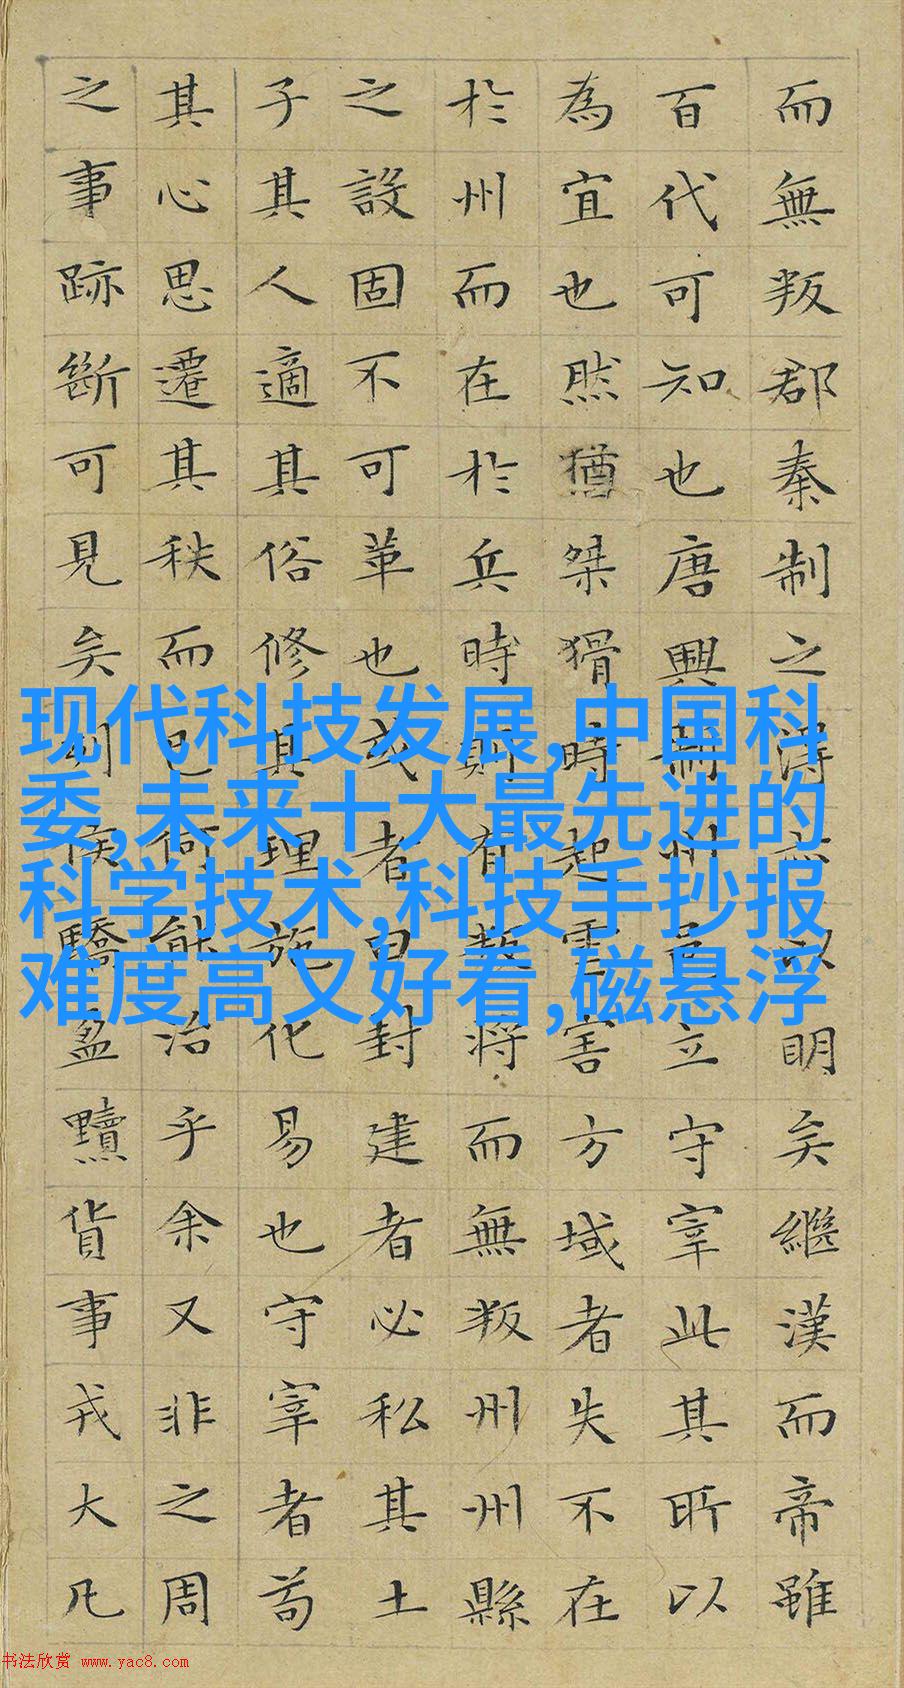 而無叛郡秦制之得亦以明矣繼漢而帝雖
百代可知也唐興制州邑立守宰此其所以
為宜也然猶桀猾時起虐害方域者失不在
於州而在於兵時則有叛將而無叛州州縣
之設固不可革也或者曰封建者必私其土
子其人適其俗修其理施化易也守宰者苟
其心思遷其秩而已何能治乎余又非之周
之事跡斷可見矣列侯驕盈黷貨事戎大凡
现代科技发展,中国科
委,未来十大最先进的
科学技术,科技手抄报
难度高又好看,磁悬浮
书法欣赏 www.yac8.com